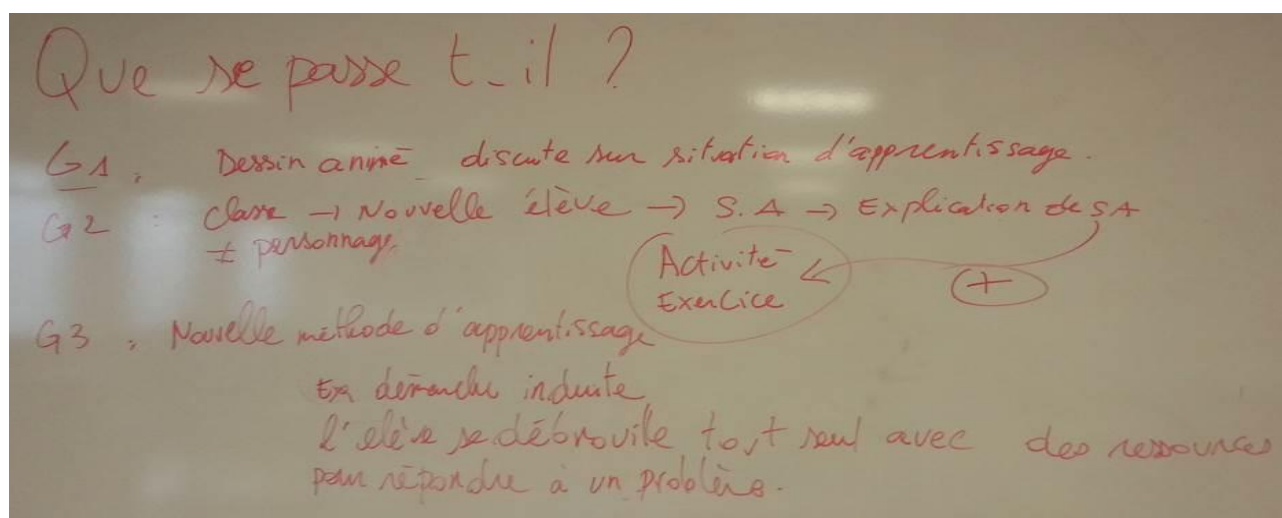 Que se passe t-il ?
G1 : Dessin animé discute sur situation d'apprentissage.
G2 : Classe → Nouvelle élève → S.A → Explication de SA
≠ personnage
Activité
Exercice
+
G3 : Nouvelle méthode d'apprentissage
Ex démarche
l'elève se débrouille tout seul avec des ressources
pour répondre à un problème.